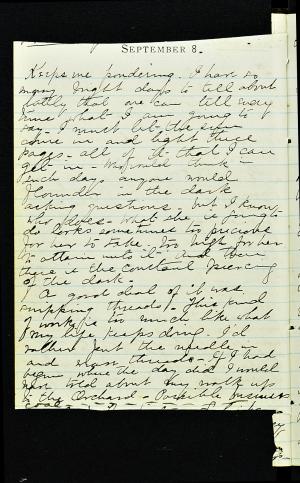 SEPTEMBER 8.
Keeps me pondering. I have so
many bright days to tell about
lately that one can tell every
time what I am going to
say. I must let the sun
come in and light these
pages - all of it that I can
get in -
such days anyone would
flounder in the dark
asking questions. but I know
who
do looks sometimes too
for her to take. Too high for her
to attain unto it - and then
there is the constant piercing
of the dark.
A good deal of it was
snipping threads. This kind
of work is too much like what
my life keeps doing. I'd
rather put the needle in
and more threads - If I had
begun where the day did I would
have told about my walk up
to the Orchard -